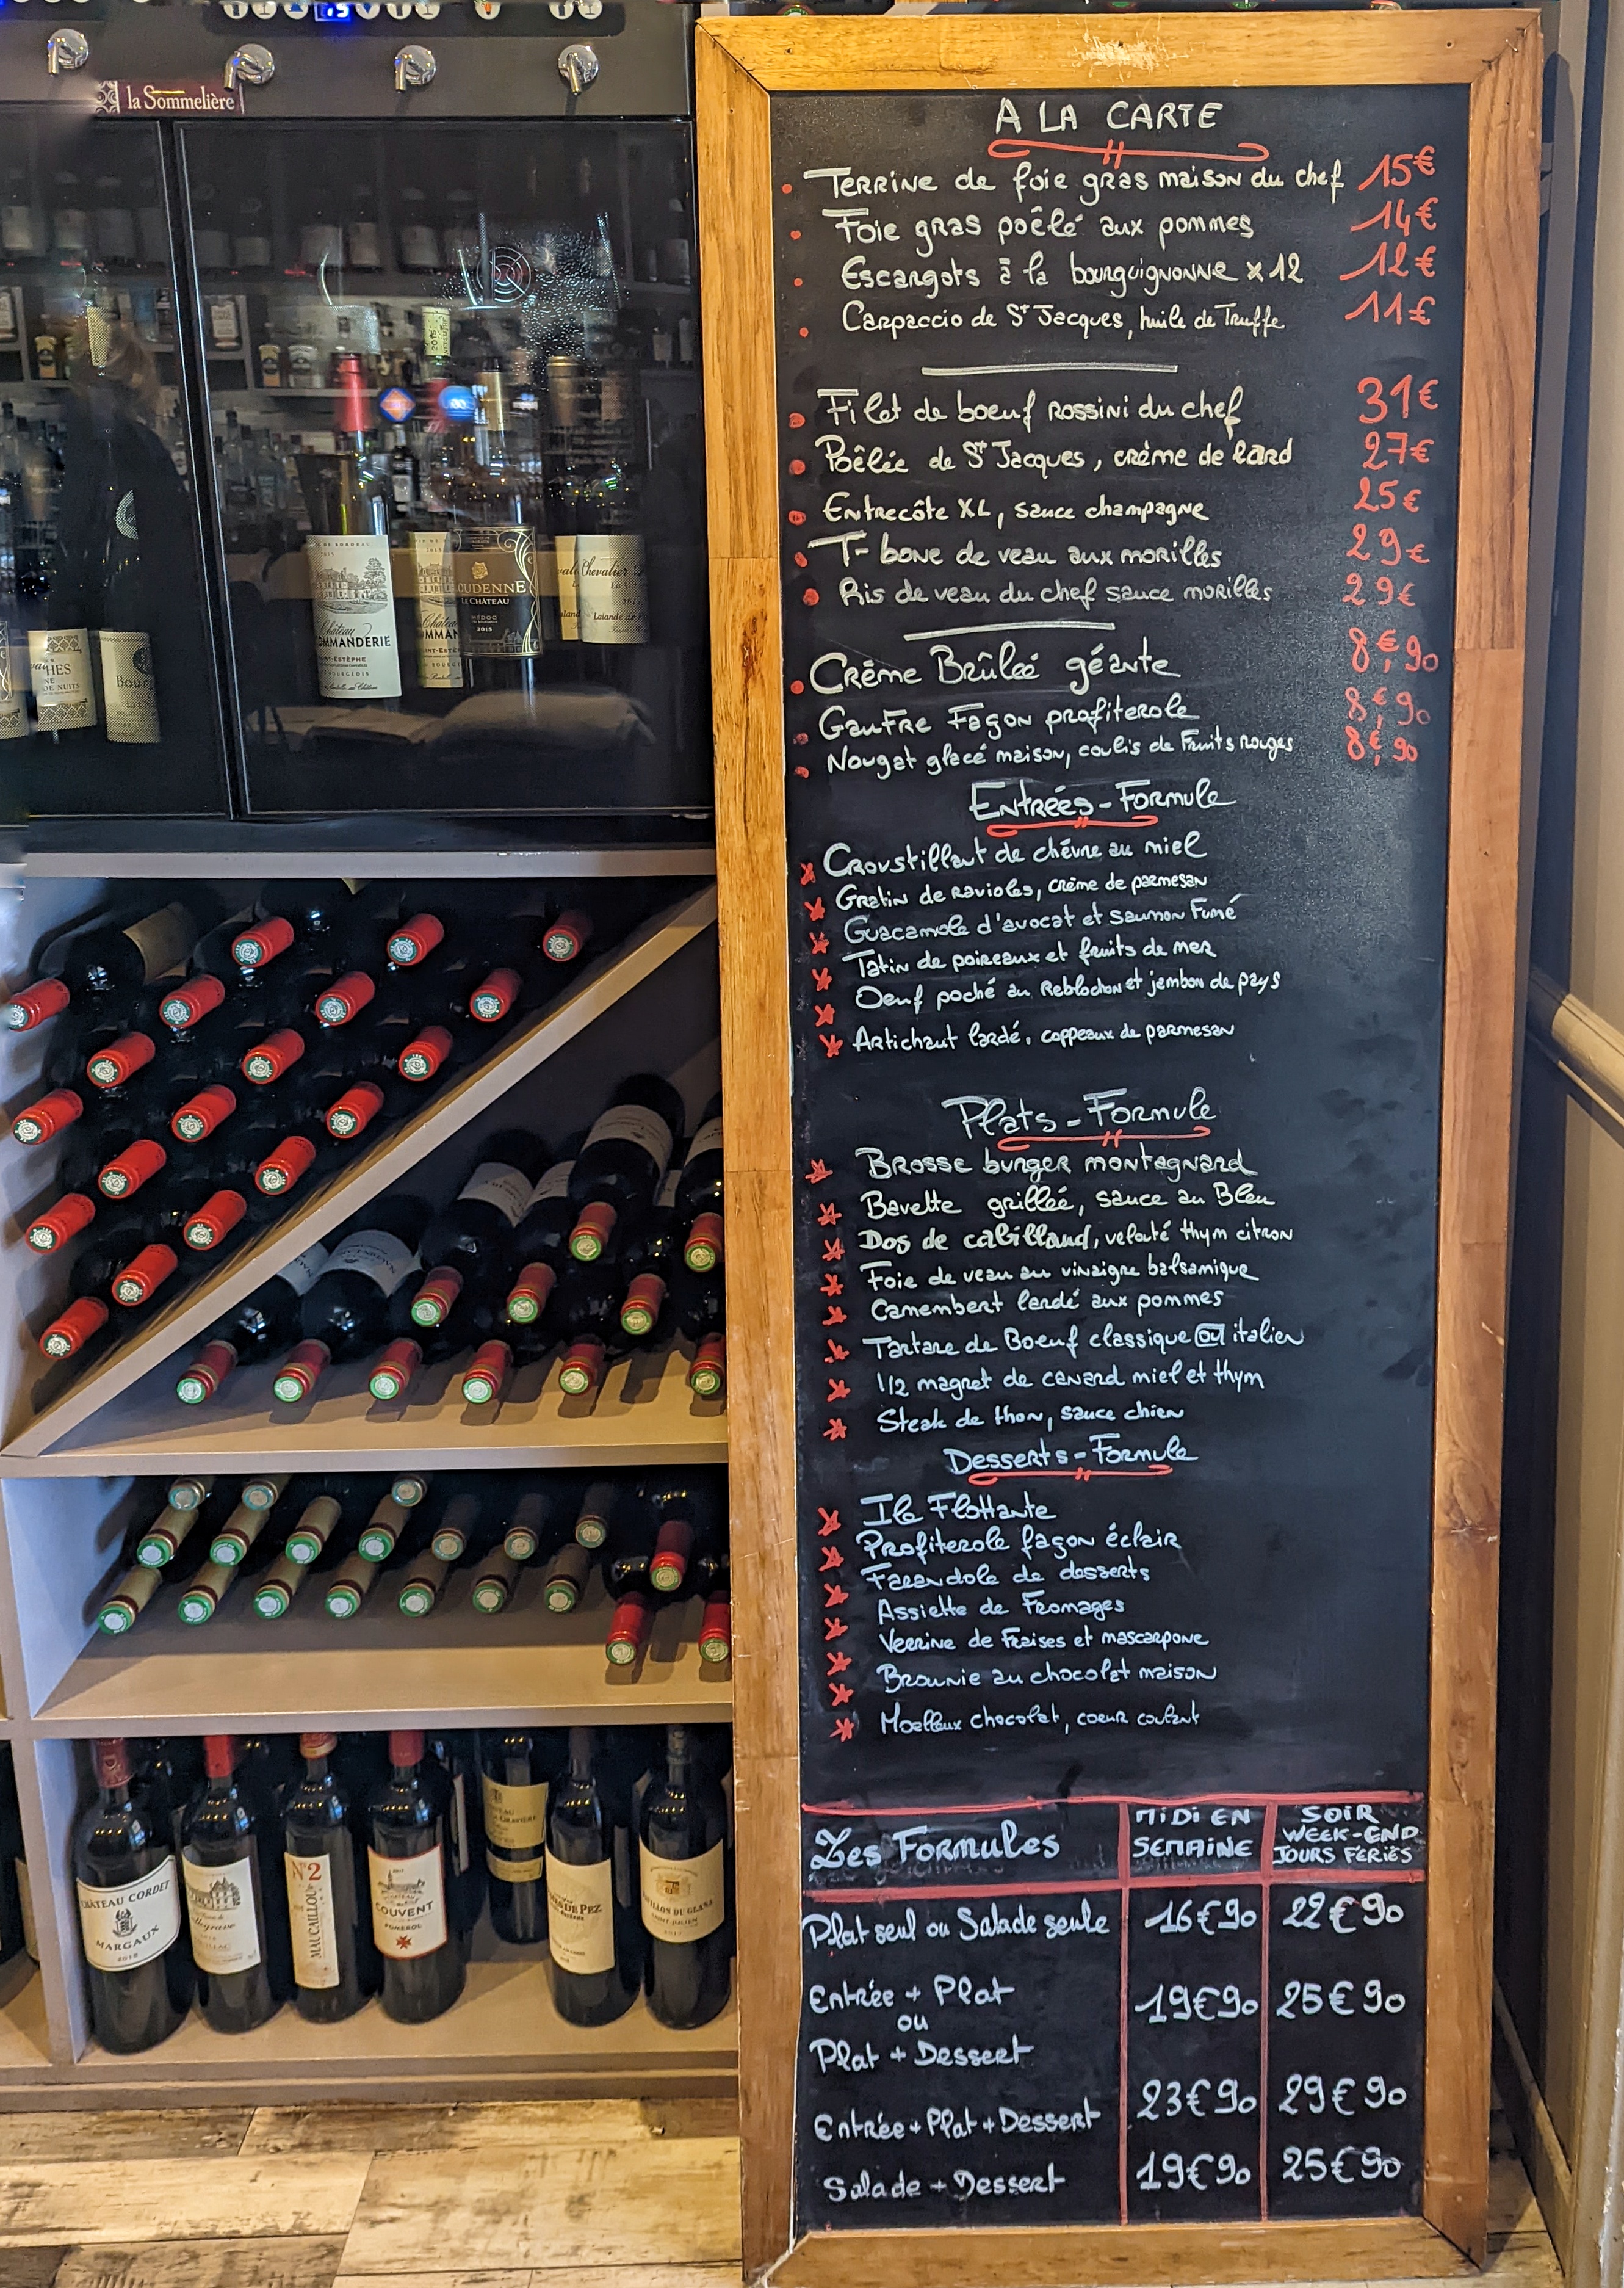 la Sommelière
A LA CARTE
Terrine de foie gras maison du chef 15€
Foie gras poêlé aux pommes 14€
Escargots à la bourguignonne x12 12€
Carpaccio de St Jacques, huile de Truffe 11€
Filet de boeuf rossini du chef 31€
Poêlée de St Jacques, crème de lard 27€
Entrecôte XL, sauce champagne 25€
T-bone de veau aux morilles 29€
Ris de veau du chef sauce morilles 29€
Crème Brûlée géante 8€,90
Gaufre Façon profiterole 8€,90
Nougat glacé maison, coulis de Fruits rouges 8€,90
Entrées-Formule
Croustillant de chèvre au miel
Gratin de Ravioles, crème de parmesan
Guacamole d'avocat et saumon Fumé
Tatin de poireaux et fruits de mer
Oeuf poché au Reblochon et jambon de pays
Artichaut lardé, coppeaux de parmesan
Plats-Formule
Brosse burger montagnard
Bavette grillée, sauce au Bleu
Dos de cabillaud, velouté thym citron
Foie de veau au vinaigre balsamique
Camembert lardé aux pommes
Tartare de Boeuf classique ou italien
1/2 magret de canard miel et thym
Steak de thon, sauce chien
Desserts-Formule
Ile Flottante
Profiterole façon éclair
Farandole de desserts
Assiette de Fromages
Verrine de Fraises et mascarpone
Brownie au chocolat maison
Moelleux chocolat, coeur coulant
Les Formules
MIDI EN
SEMAINE
SOIR
WEEK-END
JOURS FERIÉS
Plat seul ou Salade seule 16€90 22€90
Entrée + Plat 19€90 25€90
ou
Plat + Dessert
Entrée + Plat + Dessert 23€90 29€90
Salade + Dessert 19€90 25€90
Château
OMMANDERIE
SAINT-ESTÈPHE
OUDENNE
LE CHÂTEAU
MÉDOC
2015
Chevalier
CHÂTEAU CORDET
MARGAUX
N°2
MAUCAILLOU
COUVENT
POMEROL
DE PEZ